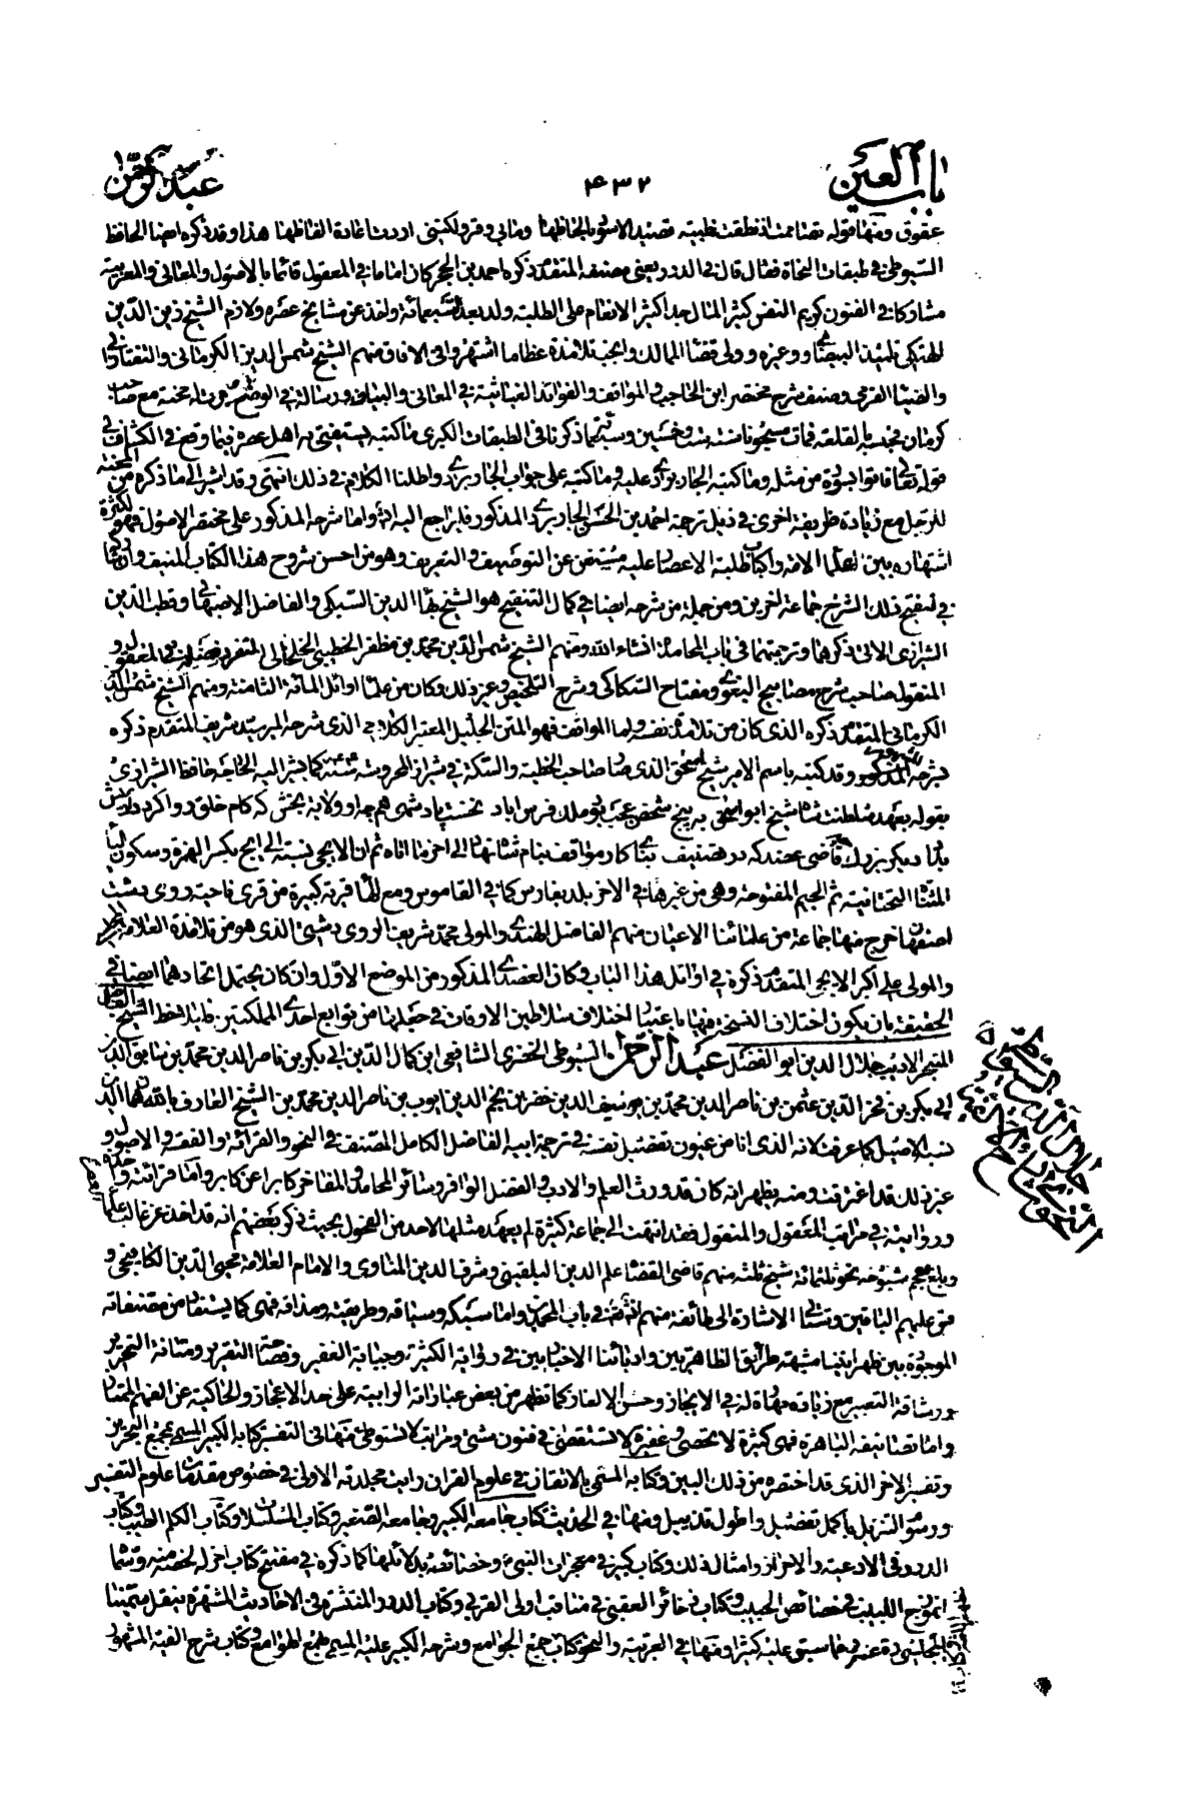 باب العين
٤٣٢
عبد الرحمن
عقوق ومنها قوله نطقت ظبية قصيد الاسود بالحاظها ومالى وفر ولكننى اردت اعادة الفاظها هذا وقد ذكره ايضا الحافظ
السيوطى فى طبقات النحاة فقال قال فى الدرر يعنى مصنفه المتقدم ذكره احمد بن الحجر كان اماما فى المعقول قائما بالاصول والمعانى والعربية
مشاركا فى الفنون كريم النفس كثير المال جدا كثير الانعام على الطلبة ولد بعد السبعمائة واخذ عن مشايخ عصره ولازم الشيخ زين الدين
الهنكى تلميذ البيضاوى وغيره وولى قضا الممالك وانجب تلامذة عظاما اشتهروا فى الافاق منهم الشيخ شمس الدين الكرمانى والتفتازانى
والضيا القرمى وصنف شرح مختصر ابن الحاجب والمواقف والفوائد الغياثية فى المعانى والبيان ورسالة فى الوضع وجرت له محنة مع صاحب
كرمان فحبسه بالقلعة فمات مسجونا سنة ست وخمسين وسبعمائة ذكرنا فى الطبقات الكبرى ما كتبه يستفتى به اهل عصره فيما وقع فى الكشاف فى
قوله تعالى فاتوا بسورة من مثله وما كتبه الجاربردى عليه وما كتبه على جواب الجاربردى واطلنا الكلام فى ذلك انتهى وقد اشير الى ما ذكره من المحنة
للرجل مع زيادة ظريفة اخرى فى ذيل ترجمة احمد بن الحسن الجاربردى المذكور فليراجع اليه انشاء واما شرحه المذكور على مختصر الاصول فهو لكثرة
اشتهاره بين العلما الافه واكباب طلبة الاعصار عليه مستغن عن التوصيف والتعريف وهو من احسن شروح هذا الكتاب المنيف وان شارك
فى تنقيح ذلك الشرح جماعة اخرين ومن جملة من شرحه ايضا فى كمال التنقيح هو الشيخ بهاء الدين السبكى والفاضل الاصبهانى وقطب الدين
الشيرازى الاتى ذكرهما وترجمتهما فى باب المحامدة انشاء الله ومنهم الشيخ شمس الدين محمد بن مظفر الخطيبى الخلخالى المتفرد بفضيلتى المعقول و
المنقول صاحب شرح مصابيح البغوى ومفتاح السكاكى وشرح التلخيص وغير ذلك وكان من علماء اوائل المائة الثامنة ومنهم الشيخ شمس الدين
الكرمانى المتقدم ذكره الذى كان من تلامذة نفسه واما المواقف فهو المتن الجليل المعتبر الكلامى الذى شرحه المير سيد شريف المتقدم ذكره
بشرحه المذكور وقد كتبه باسم الامير شيخ اسحق الذى صار صاحب الخطبة والسكة فى شيراز المحروسة كما يشير اليه الخاجه حافظ الشيرازى
بقوله بعهد سلطنت شاه شيخ ابو اسحق به پنج شخص عجب بود ملك فارس اباد نخست پادشهى همچه او ولايت بخش كه كام خلق روا كرد و داد عيش
بداد ديگر بزرگ قاضى عضد كه در تصنيف بناى كار مواقف بنام شاه نهاد الى اخر ما افاده ثم ان الايجى نسبة الى ايج بكسر الهمزة وسكون الياء
المثناة التحتانية ثم الجيم المفتوحة وهى من غيرها فى الاخر بلد بفارس كما فى القاموس ومع الهاء قرية كبيرة من قرى ناحية روى دشت
اصفهان خرج منها جماعة من علمائنا الاعيان منهم الفاضل الهندى والمولى محمد شريف الروى دشتى الذى هو من تلامذة العلامة المجلسى
والمولى على اكبر الايجى المتقدم ذكره فى اوائل هذا الباب وكان العضدى المذكور من الموضع الاول وان كان يحتمل اتحادهما ايضا فى
الحقيقة بان يكون اختلاف النسخ فيها باعتبار اختلاف سلاطين الاوقات فى جعلها من توابع احدى المملكتين فليلاحظ الشيخ والفاضل
المتبحر الاديب جلال الدين ابو الفضل عبد الرحمن السيوطى الخضرى الشافعى ابن كمال الدين ابى بكر بن ناصر الدين محمد بن سابق الدين
ابى بكر بن فخر الدين عثمن بن ناصر الدين محمد بن يوسف الدين خضر بن نجم الدين ايوب بن ناصر الدين محمد بن الشيخ العارف بالله همام الدين
نسبه الاصيل كما عرفت لانه الذى انا من عيون تفصيل نفسه فى ترجمة ابيه الفاضل الكامل المصنف فى النحو والقرائة والفقه والاصول و
غير ذلك قد اغترفت ومنه يظهر انه كان قد ورث العلم والادب والفضل الوافر وسائر المحامد والمفاخر كابرا عن كابر واما قرائته وحذاقه
وروايته فى مراتب المعقول والمنقول فقد انتهت الى جماعة كثيرة لم يعهد مثلها لاحد من الفحول بحيث ذكر بعضهم انه قد اخذ عن غالب علماء العصر
وبلغ معجم شيوخه نحو ثلثمائة شيخ ثلثة منهم قاضى القضا علم الدين البلقينى وشرف الدين المناوى والامام العلامة محيى الدين الكافيجى و
قس عليهم الباقين وستاتى الاشارة الى طائفة منهم فى باب المحمدين واما سبكه وسياقه وطريقته ومذاقه فهى كما يستفاد من مصنفاته
الموجودة بين ظهرانينا مشبهة طرائق الظاهريين وادبائنا الاخباريين فى رواية الكثير وجباية الغفير وفصاحة التقرير ومتانة التحرير
ورشاقة التعبير مع زيادة مهارة له فى الايجاز وحسن الالغاز كما تظهر من بعض عباراته الوافية على حد الاعجاز والحاكية عن الفهم الممتاز
واما تصانيفه الباهرة فهى كثيرة لا تحصى وغفيرة لا تستقصى فى فنون شتى ومراتب لا تستوطى منها فى التفسير كتابه الكبير المسمى بمجمع البحرين
وتفسيره الاخر الذى قد اختصره من ذلك البين وكتابه المسمى بالاتقان فى علوم القران رايت مجلدته الاولى فى خصوص مقدمات علوم التفسير
ورسوم التنزيل باكمل تفصيل واطول تذييل ومنها فى الحديث كتاب جامعه الكبير وجامعه الصغير وكتاب المسلسلات وكتاب الكلم الطيب وكتاب
الدرر فى الادعية والاحراز وامثال ذلك وكتاب كبير فى معجزات النبى وخصائصه بدلائلها كما ذكره فى مفتتح كتاب اخر له لخصه منه وسماه
انموذج اللبيب فى خصائص الحبيب وكتاب ذخائر العقبى فى مناقب اولى القربى وكتاب الدرر المنتثرة فى الاحاديث المشتهرة ينقل سمينا
المجلسى ره عنه فيما سبق عليه كثيرا ومنها فى العربية والنحو كتاب جمع الجوامع وشرحه الكبير عليه المسمى بهمع الهوامع وكتاب شرح الفية المشهور